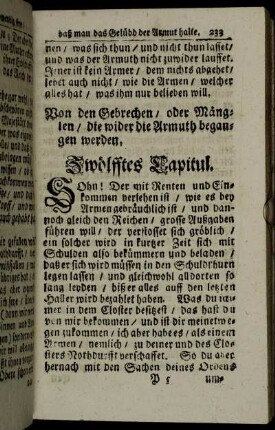 daß man das Gelübd der Armut halte. 233
nen / was sich thun / und nicht thun lasset /
und was der Armuth nicht zuwider lauffet.
Jener ist kein Armer / dem nichts abgehet /
jedoch auch nicht / wie die Armen / welcher
alles hat / was ihm nur belieben will.
Von den Gebrechen / oder Mäng-
len / die wider die Armuth began-
gen werden.
Zwölfftes Capitul.
Sohn! Der mit Renten und Ein-
kommen versehen ist / wie es bey
Armen gebräuchlich ist / und dan-
noch gleich den Reichen / grosse Außgaben
führen will / der verstosset sich gröblich /
ein solcher wird in kurtzer Zeit sich mit
Schulden also bekümmern und beladen /
daß er sich wird müssen in den Schuldthurn
legen lassen / und gleichwohl alldorten so
lang leyden / biß er alles auff den letzten
Haller wird bezahlet haben. Was du im-
mer in dem Closter besitzest / das hast du
von mir bekommen / und ist dir meinetwe-
gen zukommen / ich aber habe es / als einem
Armen / nemlich / zu deiner und des Clo-
sters Nothdurfft verschaffet. So du aber
hernach mit den Sachen deines Ordens
P 5 um-